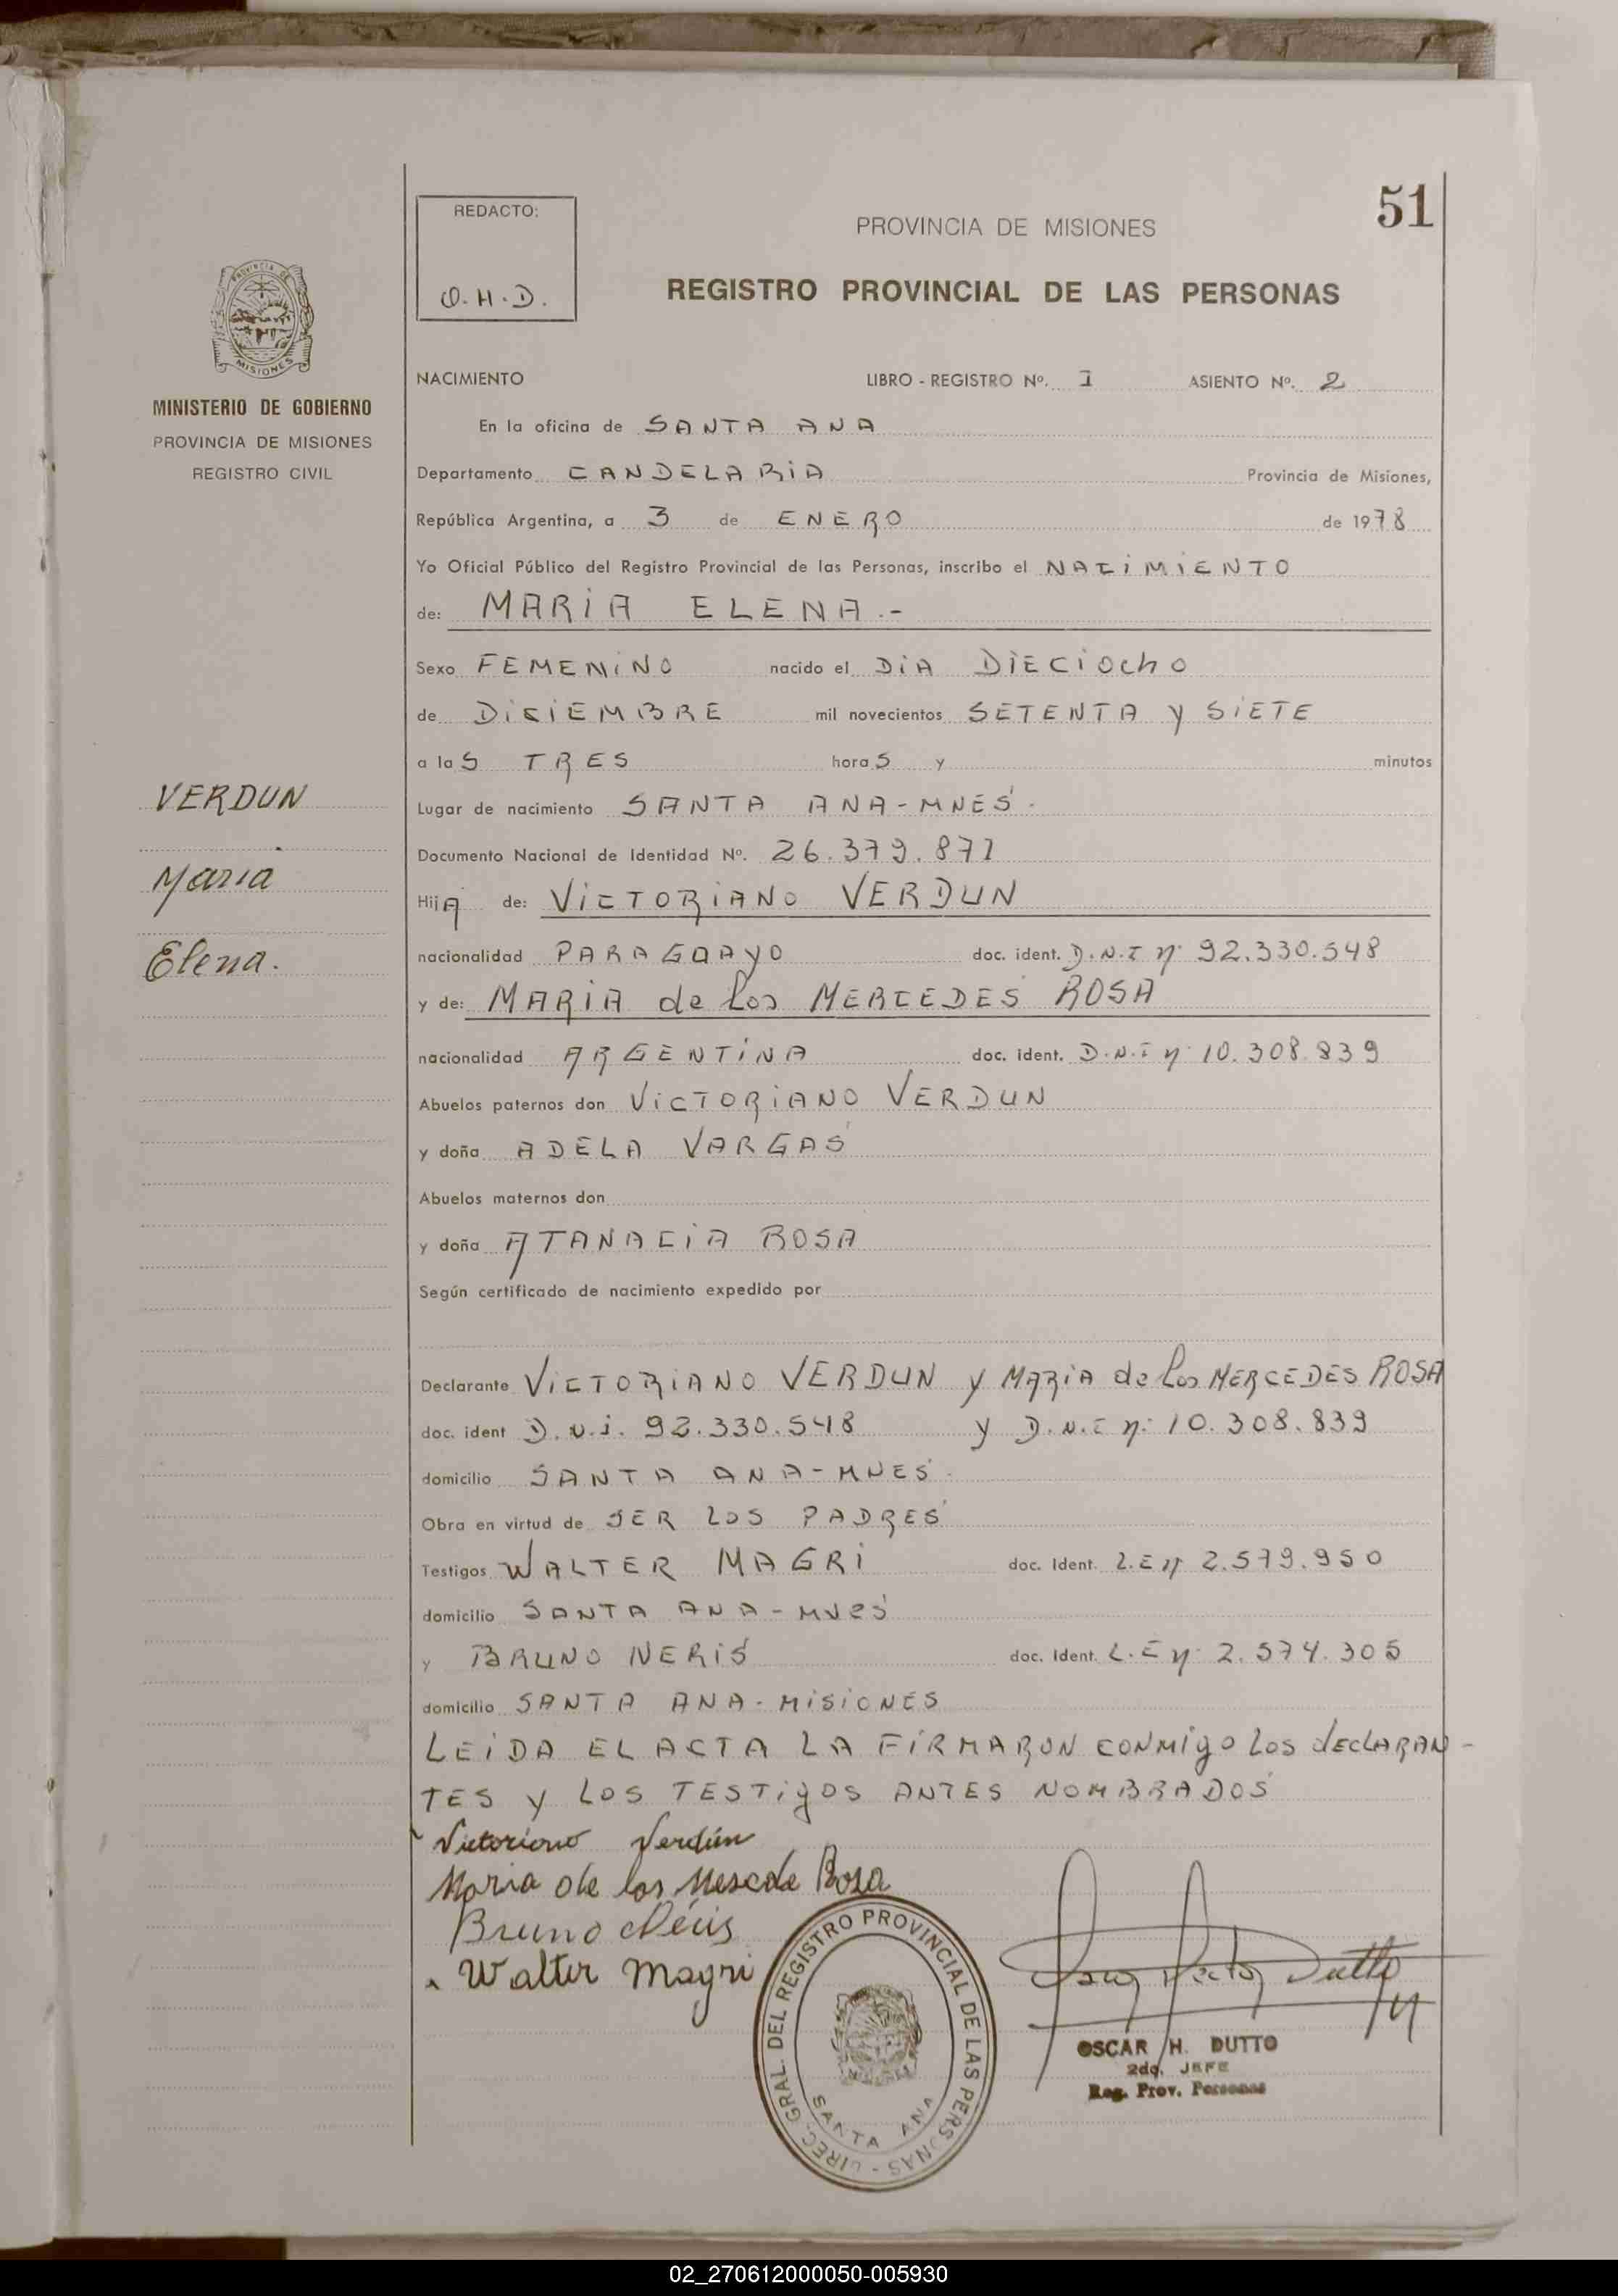 51
REDACTO:
O.H.D.
PROVINCIA DE MISIONES
REGISTRO PROVINCIAL DE LAS PERSONAS
PROVINCIA DE
MISIONES
MINISTERIO DE GOBIERNO
PROVINCIA DE MISIONES
REGISTRO CIVIL
VERDUN
Maria
Elena.
NACIMIENTO LIBRO - REGISTRO Nº. 1 ASIENTO Nº. 2
En la oficina de SANTA ANA
Departamento CANDELARIA Provincia de Misiones,
República Argentina, a 3 de ENERO de 1978
Yo Oficial Público del Registro Provincial de las Personas, inscribo el NACIMIENTO
de: MARIA ELENA.-
Sexo FEMENINO nacido el DIA DIECIOCHO
de DICIEMBRE mil novecientos SETENTA y SIETE
a las TRES horas y minutos
Lugar de nacimiento SANTA ANA-MNES.
Documento Nacional de Identidad Nº. 26.379.871
Hija de: VICTORIANO VERDUN
nacionalidad PARAGUAYO doc. ident. D.N.I nº 92.330.548
y de: MARIA de los MERCEDES ROSA
nacionalidad ARGENTINA doc. ident. D.N.I nº 10.308.839
Abuelos paternos don VICTORIANO VERDUN
y doña ADELA VARGAS
Abuelos maternos don
y doña ATANACIA ROSA
Según certificado de nacimiento expedido por
Declarante VICTORIANO VERDUN y MARIA de los MERCEDES ROSA
doc. ident D.N.i. 92.330.548 y D.N.I nº 10.308.839
domicilio SANTA ANA-MNES.
Obra en virtud de SER LOS PADRES
Testigos WALTER MAGRI doc. Ident. L.E nº 2.579.950
domicilio SANTA ANA-MNES
y BRUNO NERIS doc. Ident. L.E nº 2.574.305
domicilio SANTA ANA-MISIONES
LEIDA EL ACTA LA FIRMARON CONMIGO LOS DECLARAN-
TES y LOS TESTIGOS ANTES NOMBRADOS
Victoriano Verdún
Maria de los Mescede Rosa
Bruno Néris
Walter Magri
Oscar Hector Dutto
DIREC. GRAL. DEL REGISTRO PROVINCIAL DE LAS PERSONAS -
SANTA ANA
OSCAR H. DUTTO
2do. JEFE
Reg. Prov. Personas
02_270612000050-005930